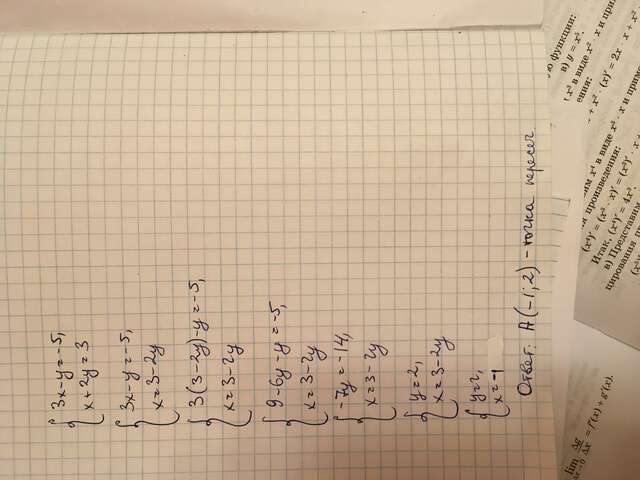 3x-y=-5,
x+2y=3
3x-y=-5,
x=3-2y
3(3-2y)-y=-5,
x=3-2y
9-6y-y=-5,
x=3-2y
-7y=-14,
x=3-2y
y=2,
x=3-2y
y=2,
x=-1
Ответ: A(-1;2) - точка пересеч
ю функции:
в) y = x³.
x³ в виде x² · x и
ения:
+ x² · (x)' = 2x · x + x²
им x⁴ в виде x³ · x и приме
и произведения:
(x⁴)' = (x³ · x)' = (x³)' · x +
Итак, (x⁴)' = 4x³.
в) Представим
цирования
lim Δg/Δx = f'(x) + g'(x).
Δx→0